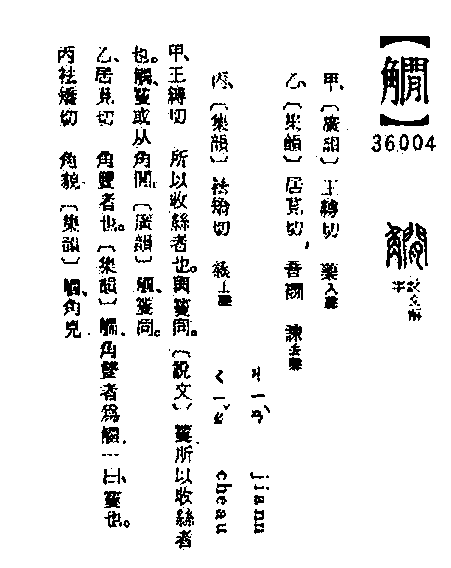 【𧤽】
36004
說文解字
甲、〔廣韻〕王縛切 藥入聲
乙、〔集韻〕居莧切,音襉 諫去聲 ㄐㄧㄢˋ jiann
丙、〔集韻〕袪矯切 篠上聲 ㄑㄧㄠˇ cheau
甲、王縛切 所以收絲者也。與籆同。〔說文〕籆所以收絲者
也。𧤽、籆或从角閒。〔廣韻〕𧤽、籆同。
乙、居莧切 角豎者也。〔集韻〕𧤽、角豎者爲𧤽、一曰、籆也。
丙袪矯切 角貌〔集韻〕𧤽、角皃